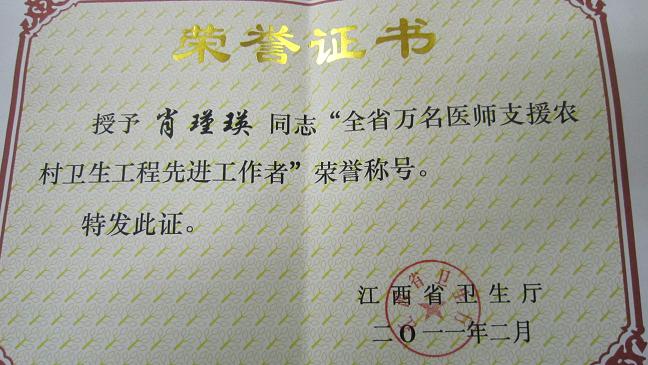 荣誉证书
授予 肖瑾瑛 同志“全省万名医师支援农
村卫生工程先进工作者”荣誉称号。
特发此证。
江西省卫生厅
江西省卫生厅
二〇一一年二月